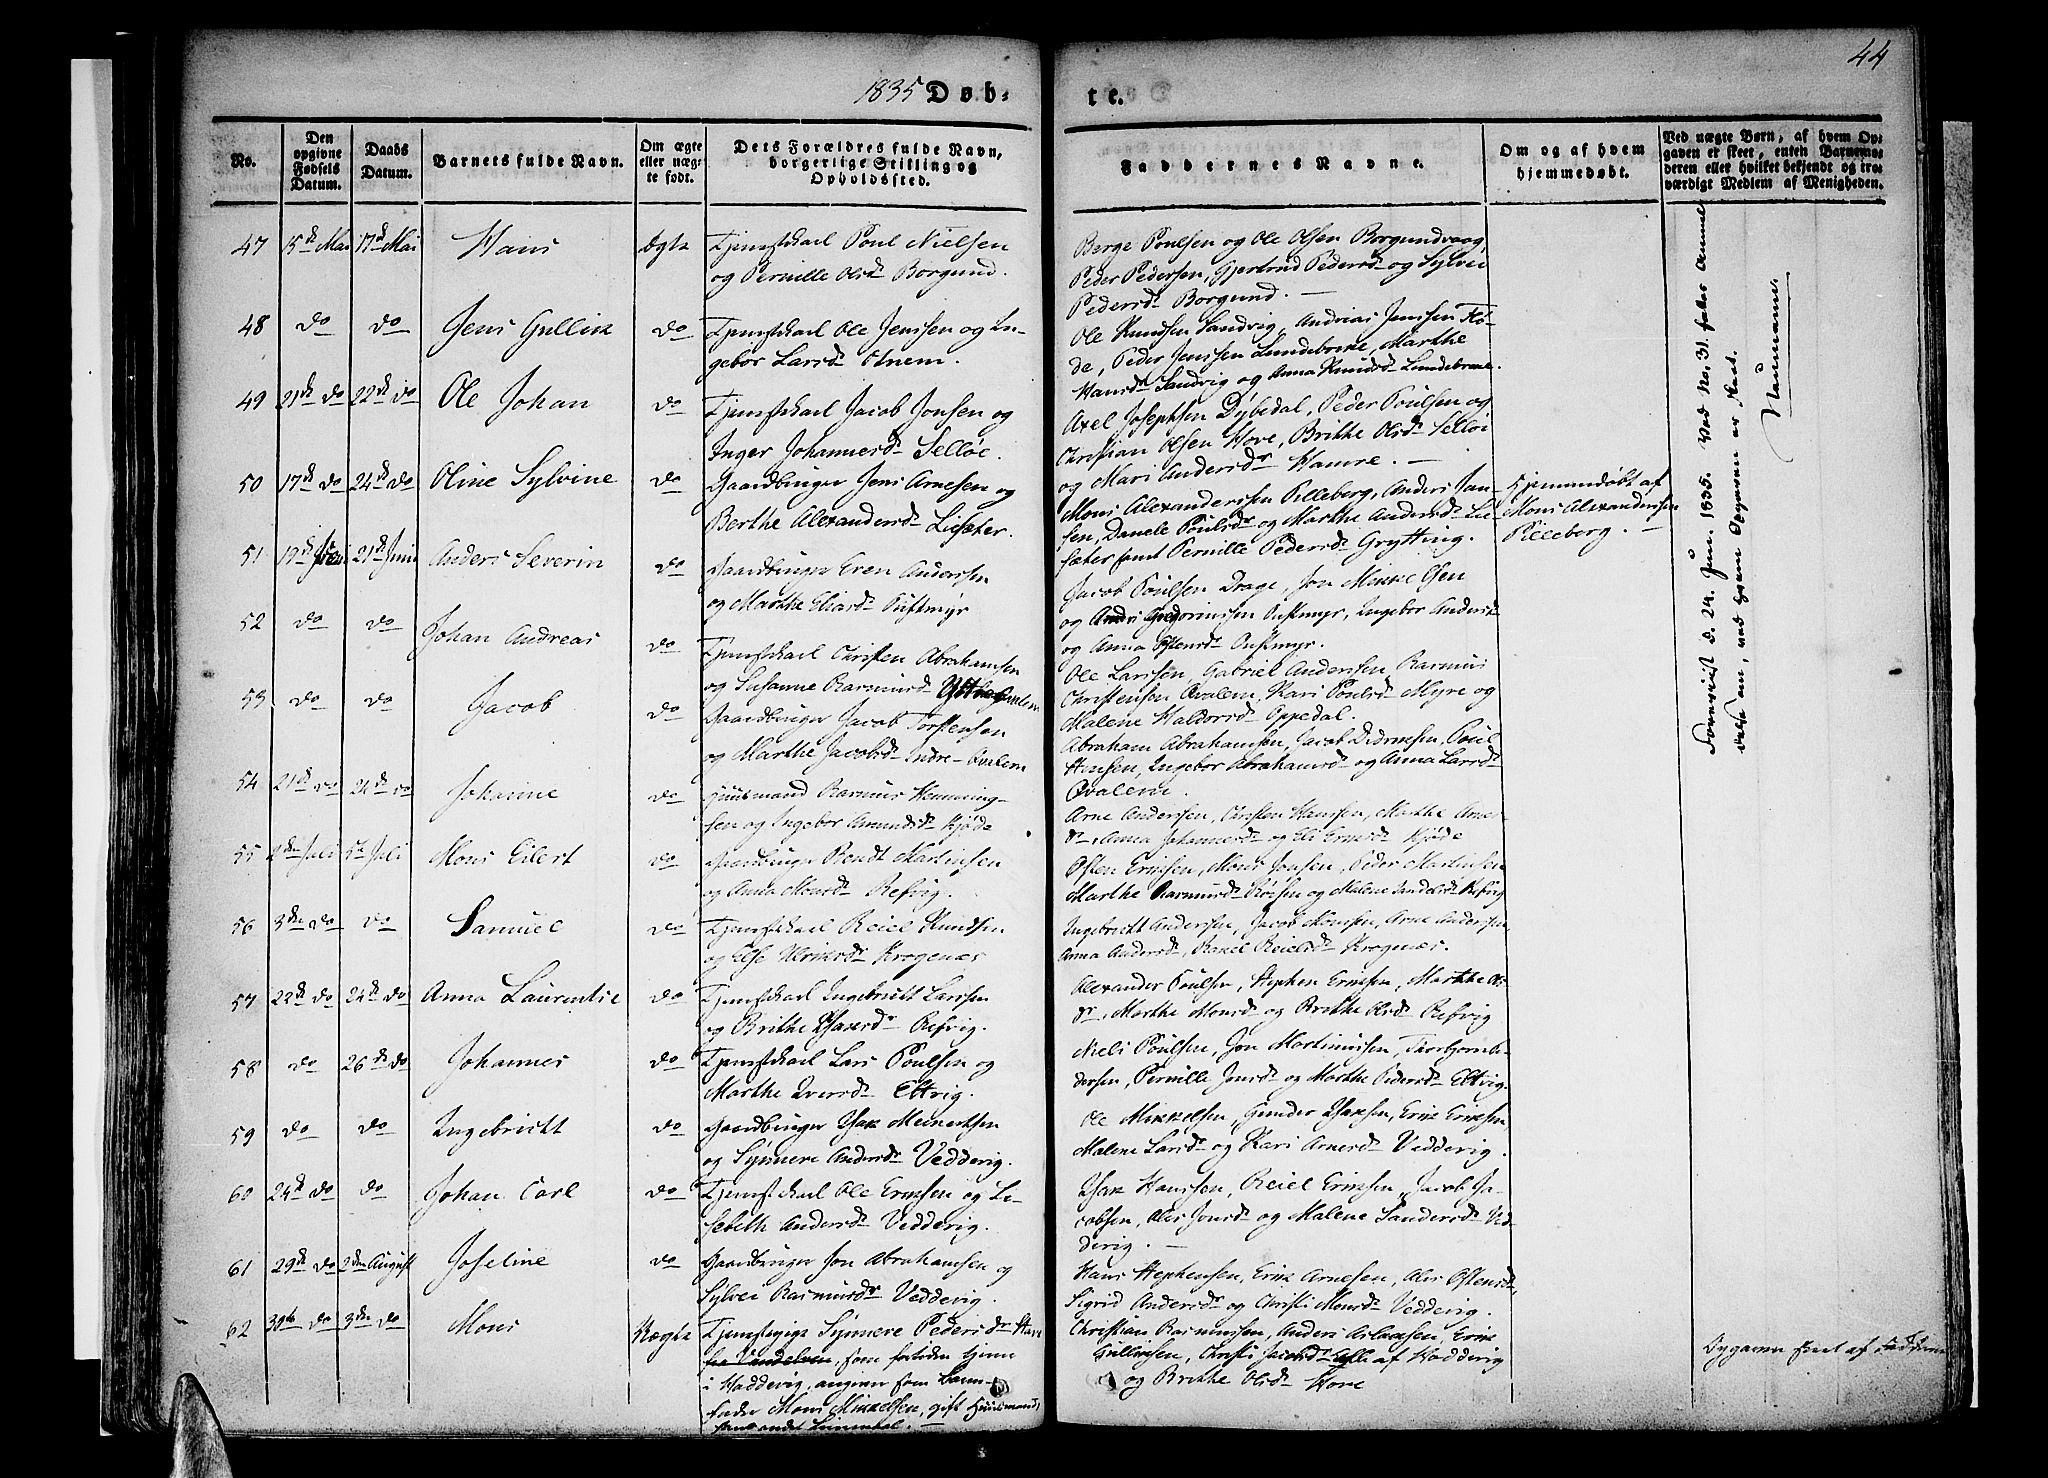 44
1835 Døb-
te.
No.
Den opgivne Fødsels Datum.
Daabs Datum.
Barnets fulde Navn.
Om ægte eller uægte født.
Dets Forældres fulde Navn, borgerlige Stilling og Opholdssted.
Faddernes Navne.
Om og af hvem hjemmedøbt.
Ved uægte Børn, af hvem Opgaven er skeet, enten Barnemoderen eller hvilket bekjendt og troværdigt Medlem af Menigheden.
47 15de Mai 17de Mai Hans Ægte Tjenstkarl Poul Nielsen
og Pernille Olsdr Borgund.
Berge Poulsen og Ole Olsen Borgundvaag,
Peder Pedersen, Gjertrud Pedersdr og Sylvei
Pedersdr Borgund. —
48 do do Jens Gullik do Tjenstkarl Ole Jenssen og In-
gebor Larsdr Otnem.
Ole Knudsen Sandvig, Andreas Jenssen Hø-
de, Peder Jenssen Lundebrekke, Marthe
Hansdr Sandvig og Anna Knudsdr Lundebrekke.
49 21de do 22de do Ole Johan do Tjenstkarl Jacob Jonsen og
Inger Johannesdr Selløe.
Axel Josephsen Dybedal, Peder Poulsen og
Christian Olsen Hove, Brithe Olsdr Selløe
og Mari Andersdr Hamre. —
50 17de do 24de do Oline Sylvine do Gaardbruger Jens Arnesen og
Berthe Alexandersdr Lisæter.
Mons Alexanderssen Pilleberg, Anders Jan-
sen, Danele Poulsdr og Marthe Andersdr Li-
sæter samt Pernille Pedersdr Grytting.
Hjemmedøbt af
Mons Alexanderssen
Pilleberg. —
51 19de Juni 21de Juni Anders Severin do Gaardbruger Even Anderssen
og Marthe Eliasdr Pustmyr
Jacob Poulsen Drage, Jon Mikkelsen
og Anders Gregoriussen Pustmyr, Ingebor Andersdr
og Anna Østensdr Pustmyr.
52 do do Johan Andreas do Tjenstkarl Christen Abrahamsen
og Susanne Rasmusdr Ytre Qvalem
Ole Larssøn, Gabriel Anderssen Rasmus
Christensen Qvalem, Kari Poulsdr Myre og
Malene Haldorsdr Oppedal.
53 do do Jacob do Gaardbruger Jacob Torstensen
og Marthe Jacobsdr Indre-Qvalem
Abraham Abrahamsen, Jacob Didriksen, Poul
Hansen, Ingebor Abrahamsdr og Anna Larsdr
Qvalem.
54 21de do 24de do Johanne do Huusmand Rasmus Hemming-
sen og Ingebor Amundsdr Kjøde
Arne Andersen, Christen Hanssen, Marthe Arne-
dr, Anna Johannesdr og Eli Ernsdr Kjøde
55 2den Juli 5te Juli Mons Eilert do Gaardbruger Bendt Martinsen
og Anna Monsdr Refvig.
Østen Erichsen, Mons Jonsen, Peder Martinsen
Marthe Rasmusdr Røisen og Malene Andersdr Refvig
56 3die do do Samuel do Tjenstkarl Reiel Knudsen
og Else Ulriksdr Krogenæs
Ingebricht Andersen, Jacob Monsen, Arne Andersen,
Anna Andersdr, Rakel Reielsdr Krogenæs.
57 23de do 24de do Anna Laurentie do Tjenstkarl Ingebricht Larssen
og Brithe Isaksdr Refvig.
Alexander Poulsen, Stephen Eriksen, Marthe Ols-
dr, Marthe Monsdr og Brithe Olsdr Refvig
58 do 26de do Johannes do Tjenstkarl Lars Poulsen og
Marthe Iversdr Ettvig.
Niels Poulsen, Jon Martinussen, Thorbjørn Pe-
dersen, Pernille Jonsdr og Marthe Pedersdr Ettvig.
59 do do Ingebricht do Gaardbruger Isak Meinertsen
og Synneve Andersdr Vedderig.
Ole Mikkelsen, Gunder Isaksen, Erik Eriksen,
Malene Larsdr og Kari Arnesdr Vedderig.
60 24de do do Johan Carl do Tjenstkarl Ole Eriksen og Li-
sebeth Andersdr Vedderig.
Isak Hanssen, Reiel Eriksen, Jacob Ja-
cobsen, Alis Jonsdr og Malene Sandersdr Ved-
derig. —
61 29de do 2den August Joseline do Gaardbruger Jon Abrahamsen og
Sylvei Rasmusdr Veddevig.
Hans Stephensen, Erik Arnesen, Alis Østensdr,
Sigrid Andersdr og Christi Monsdr Veddevig.
62 30te do 3die do Mons Uægte Tjenstpige Synneve Pedersdr Have
fra Vindelven, som forhen tjente
i Vaddevig, angiver som Barne-
fader Mons Mikkelsen, gift Huusmand,
Christian Rasmussen, Anders Aslaksen, Erik
Gulliksen, Christi Jacobsdr Alle af Vaddevig
og Brithe Olsdr Hove
Opgaven skeet af Fadderne
Fremvist d. 24. Jun. 1835. Ved No. 31. fattes Anmel-
delse om, ved hvem Opgaven er skeet.
Naumann.